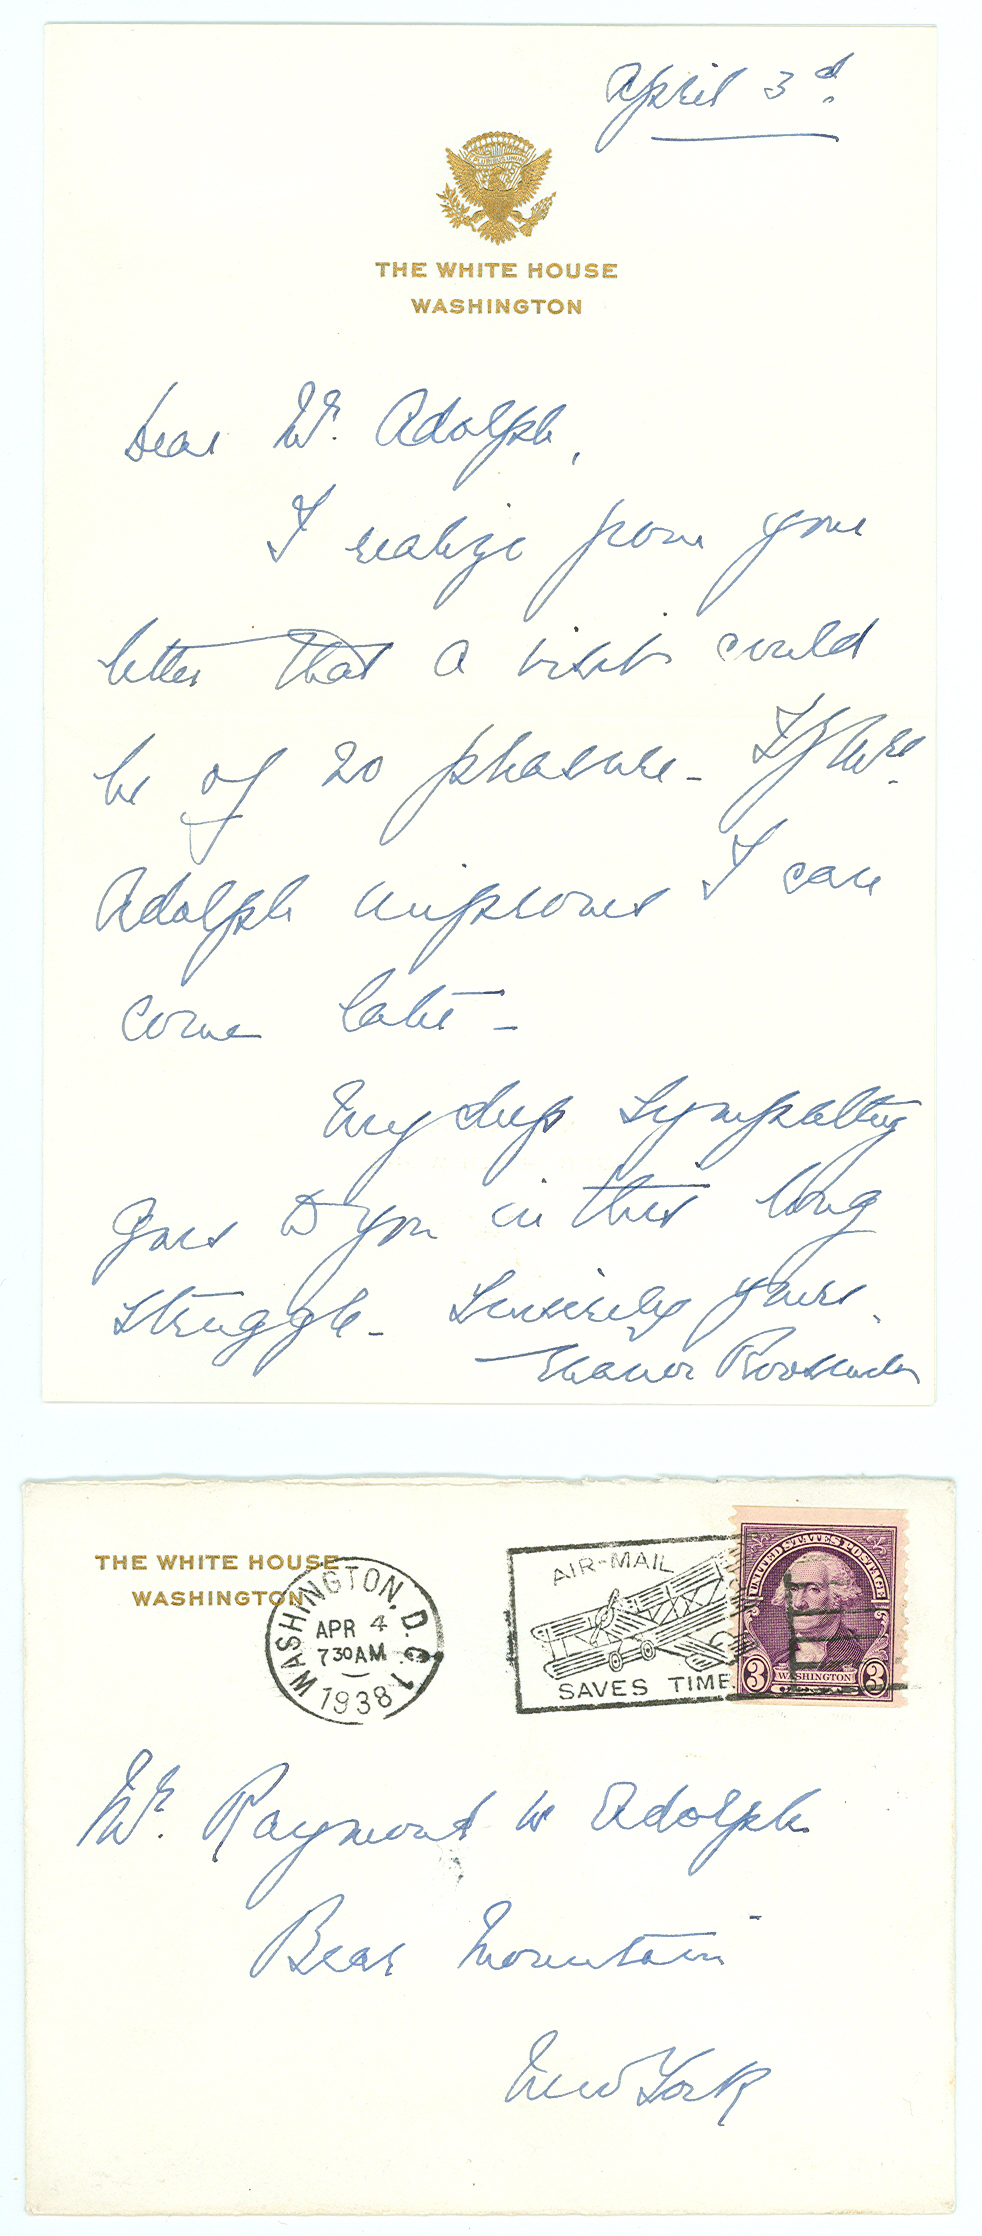 April 3d.
THE WHITE HOUSE
WASHINGTON
Dear Mr. Adolph,
I realize from your
letter that a visit would
be of no pleasure - If Mrs.
Adolph improves I can
come later -
My deep sympathy
goes to you in this long
struggle - Sincerely yours.
Eleanor Roosevelt
THE WHITE HOUSE
WASHINGTON
WASHINGTON, D.C. 1
APR 4
7 30 AM
1938
AIR-MAIL
SAVES TIME
UNITED STATES POSTAGE
3 WASHINGTON 3
Mr. Raymond W Adolph
Bear Mountain
New York